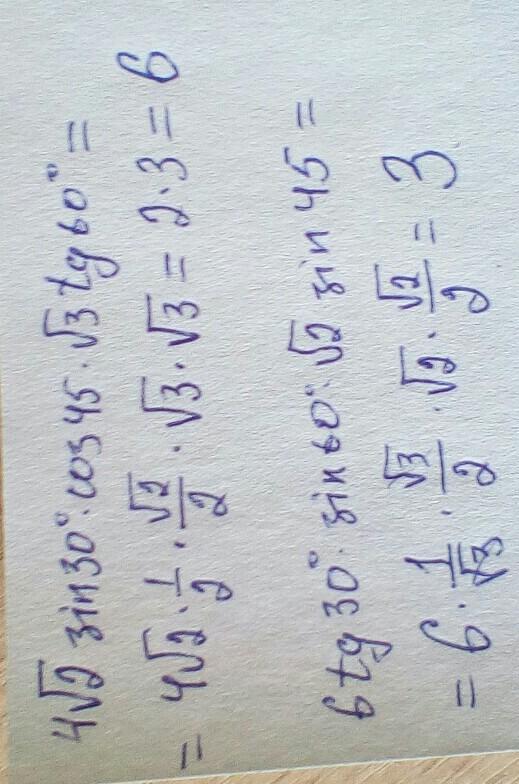 4√2 sin30°·cos45·√3 tg60° =
= 4√2 · 1/2 · √2/2 · √3 · √3 = 2·3 = 6
6 tg 30° · sin60° · √2 sin 45 =
= 6 · 1/√3 · √3/2 · √2 · √2/2 = 3